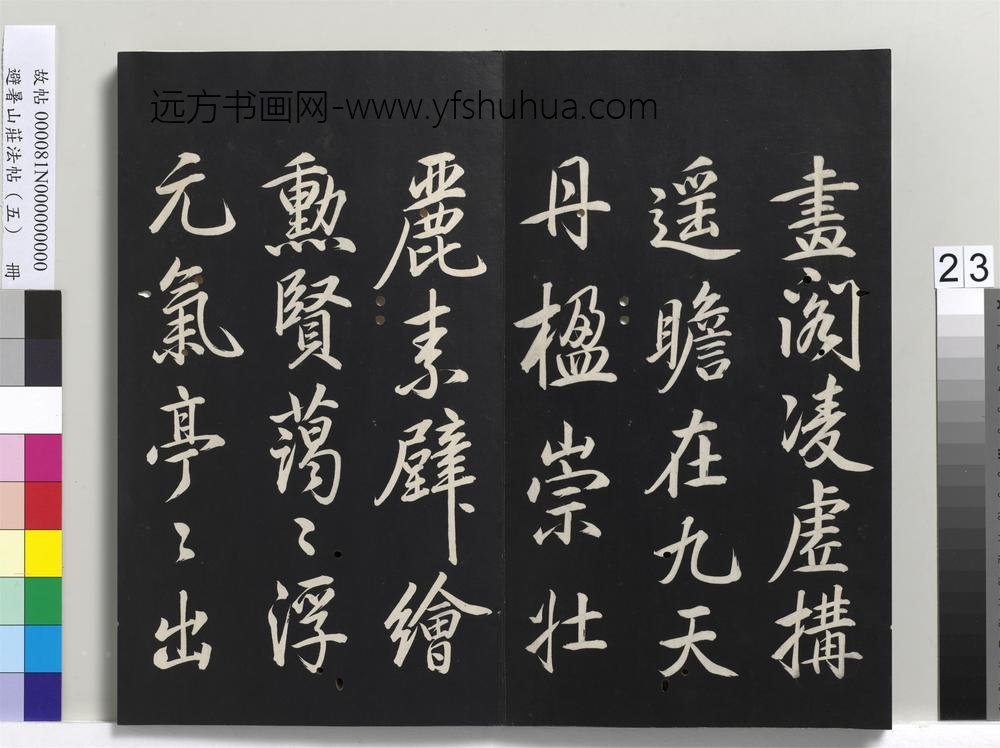 远方书画网-www.yfshuhua.com
畫閣凌虛構
遥瞻在九天
丹楹崇壯
麗素壁繪
勲賢藹〻浮
元氣亭〻出
故帖 000081N000000000
避暑山莊法帖（五） 冊
23